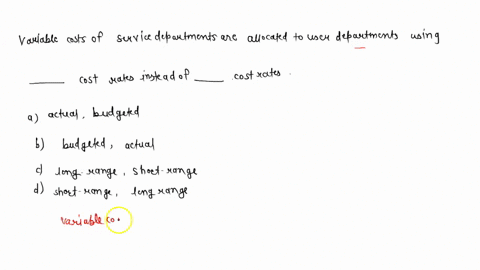 Variable costs of service departments are allocated to user departments using
____ cost rates instead of ____ cost rates.
a) actual, budgeted
b) budgeted, actual
c) long-range, short-range
d) short-range, long range
Variable co